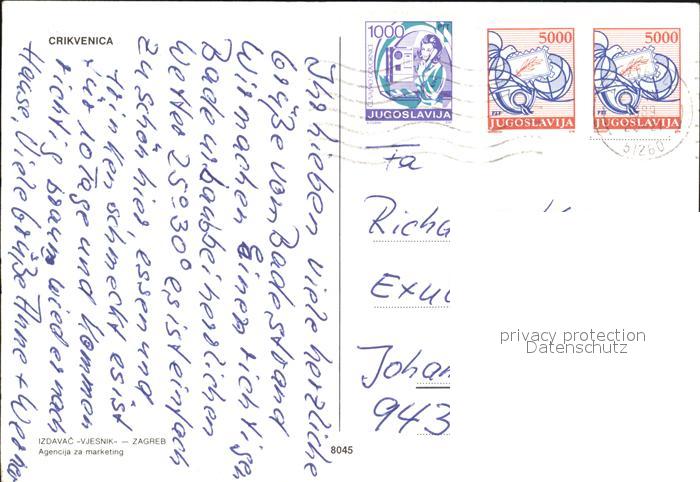 CRIKVENICA
Ihr lieben viele herzliche
Grüße vom Badestrand
Wir machen einen richtigen
Badeurlaub bei herzlichen
Wetter 25°-30° es ist einfach
zu schön hier essen und
trinken schmeckt es ist
für 10 Tage und kommen
richtig braun wieder nach
Hause, Viele Grüße Anne + Werner
IZDAVAČ »VJESNIK« — ZAGREB
Agencija za marketing
8045
1000
JUGOSLAVIJA
5000
PTT
JUGOSLAVIJA
5000
PTT
JUGOSLAVIJA
51260
Fa
Richa
Exu
Johan
943
privacy protection
Datenschutz